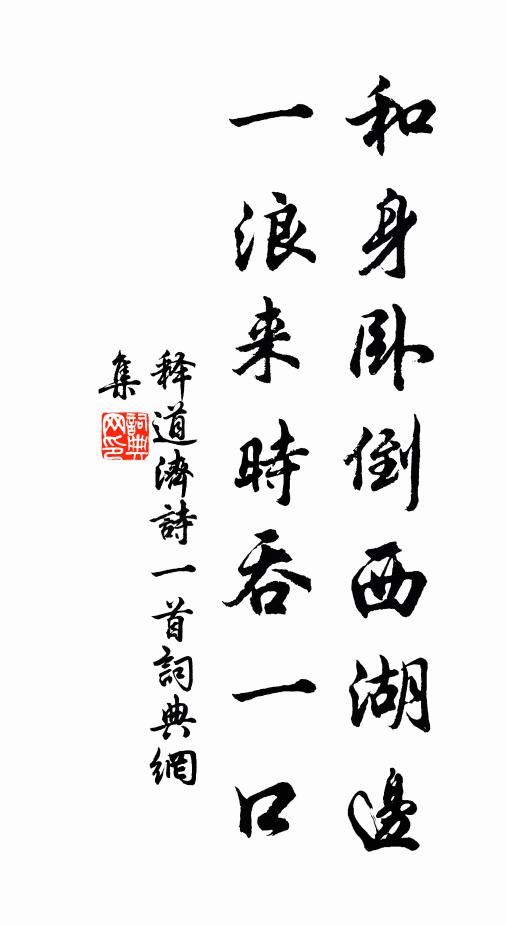 和身卧倒西湖邊
一浪来時吞一口
释道濟詩一首詞典網
集
詞典
网印